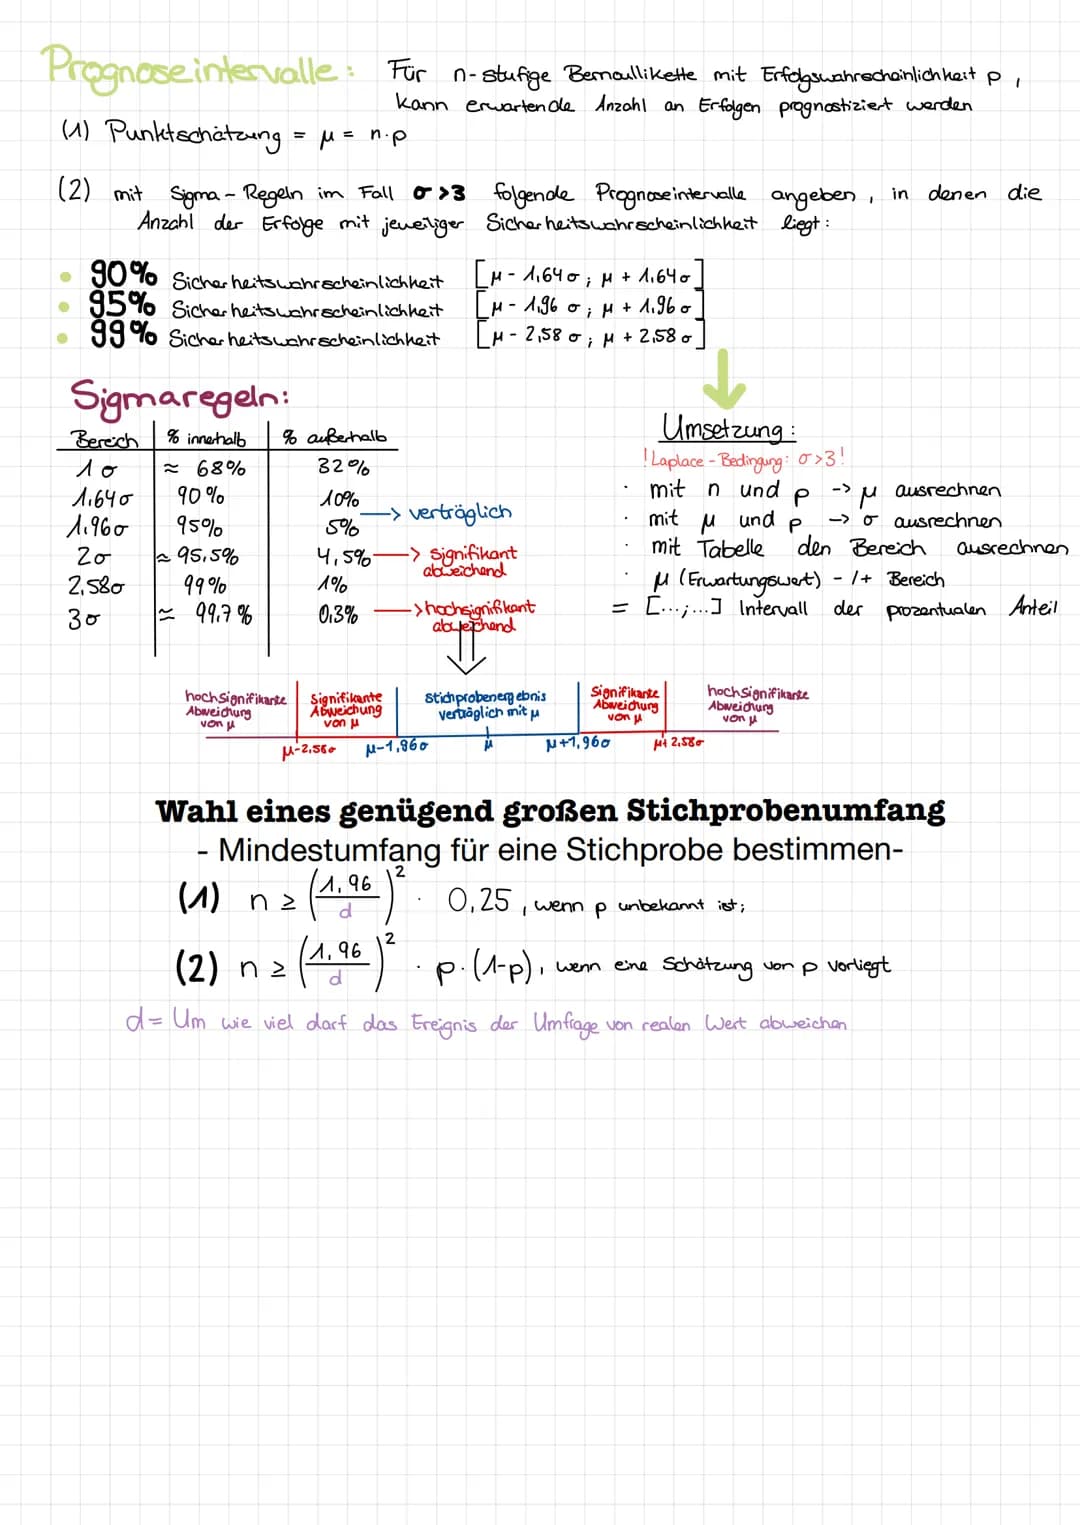 Prognoseintervalle: Für n-stufige Bernoullikette mit Erfolgswahrscheinlichkeit p,
kann erwartende Anzahl an Erfolgen prognostiziert werden
(1) Punktschätzung = μ = n·p
(2) mit Sigma-Regeln im Fall σ>3 folgende Prognoseintervalle angeben, in denen die
Anzahl der Erfolge mit jeweiliger Sicherheitswahrscheinlichkeit liegt:
• 90% Sicherheitswahrscheinlichkeit [μ - 1,64σ ; μ + 1,64σ]
• 95% Sicherheitswahrscheinlichkeit [μ - 1,96σ ; μ + 1,96σ]
• 99% Sicherheitswahrscheinlichkeit [μ - 2,58σ ; μ + 2,58σ]
Sigmaregeln:
Bereich % innerhalb % außerhalb
1σ ≈ 68% 32%
1,64σ 90% 10%
1,96σ 95% 5% -> verträglich
2σ ≈ 95,5% 4,5% -> signifikant abweichend
2,58σ 99% 1%
3σ ≈ 99,7% 0,3% -> hochsignifikant abweichend
Umsetzung:
! Laplace-Bedingung: σ>3!
· mit n und p -> μ ausrechnen
· mit μ und p -> σ ausrechnen
· mit Tabelle den Bereich ausrechnen
· μ (Erwartungswert) -/+ Bereich
= [...;...] Intervall der prozentualen Anteil
hochsignifikante Abweichung von μ
Signifikante Abweichung von μ
Stichprobenergebnis verträglich mit μ
Signifikante Abweichung von μ
hochsignifikante Abweichung von μ
μ-2,58σ μ-1,96σ μ μ+1,96σ μ+2,58σ
Wahl eines genügend großen Stichprobenumfang
- Mindestumfang für eine Stichprobe bestimmen-
(1) n ≥ (1,96/d)² · 0,25, wenn p unbekannt ist;
(2) n ≥ (1,96/d)² · p·(1-p), wenn eine Schätzung von p vorliegt
d = Um wie viel darf das Ereignis der Umfrage von realen Wert abweichen